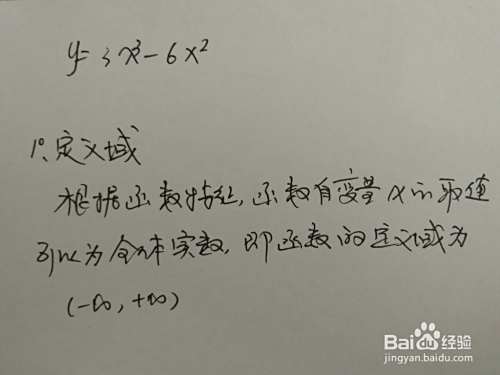 y=3x³-6x²
1°.定义域
根据函数特征,函数自变量x的取值
可以为全体实数,即函数的定义域为
(-∞,+∞)
Baidu经验
jingyan.baidu.com